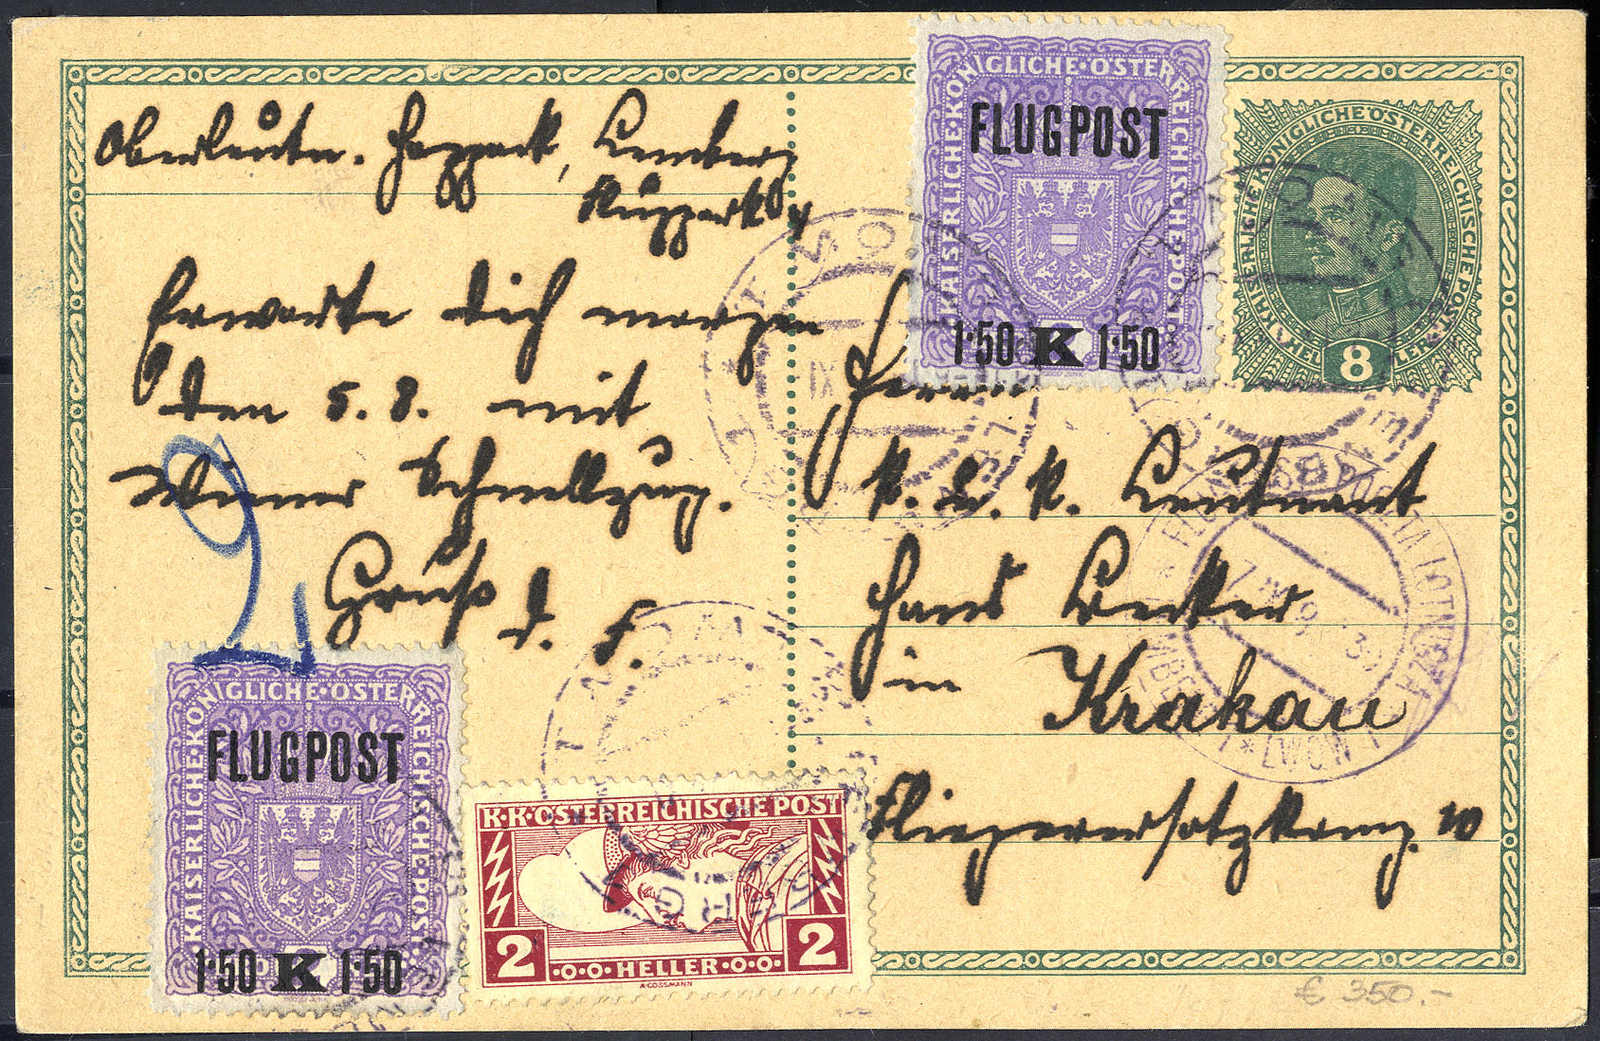 Oberleutn. Lemberg
Erwarte dich morgen
den 5. 8. mit
Wiener Schnellzug.
Gruß
d. F.
KAISERLICHE·KÖNIGLICHE·ÖSTERREICHISCHE·POST
FLUGPOST
1·50 K 1·50
KAISERLICHE KÖNIGLICHE ÖSTERREICHISCHE POST
8
Herrn
K. u. K. Leutnant
Hans Becker
in Krakau
Fliegerersatzkomp. 10
KAISERLICHE·KÖNIGLICHE·ÖSTERREICHISCHE·POST
FLUGPOST
1·50 K 1·50
K·K·ÖSTERREICHISCHE POST
2 HELLER 2
A·COSSMANN
LWÓW 1
€ 350.-